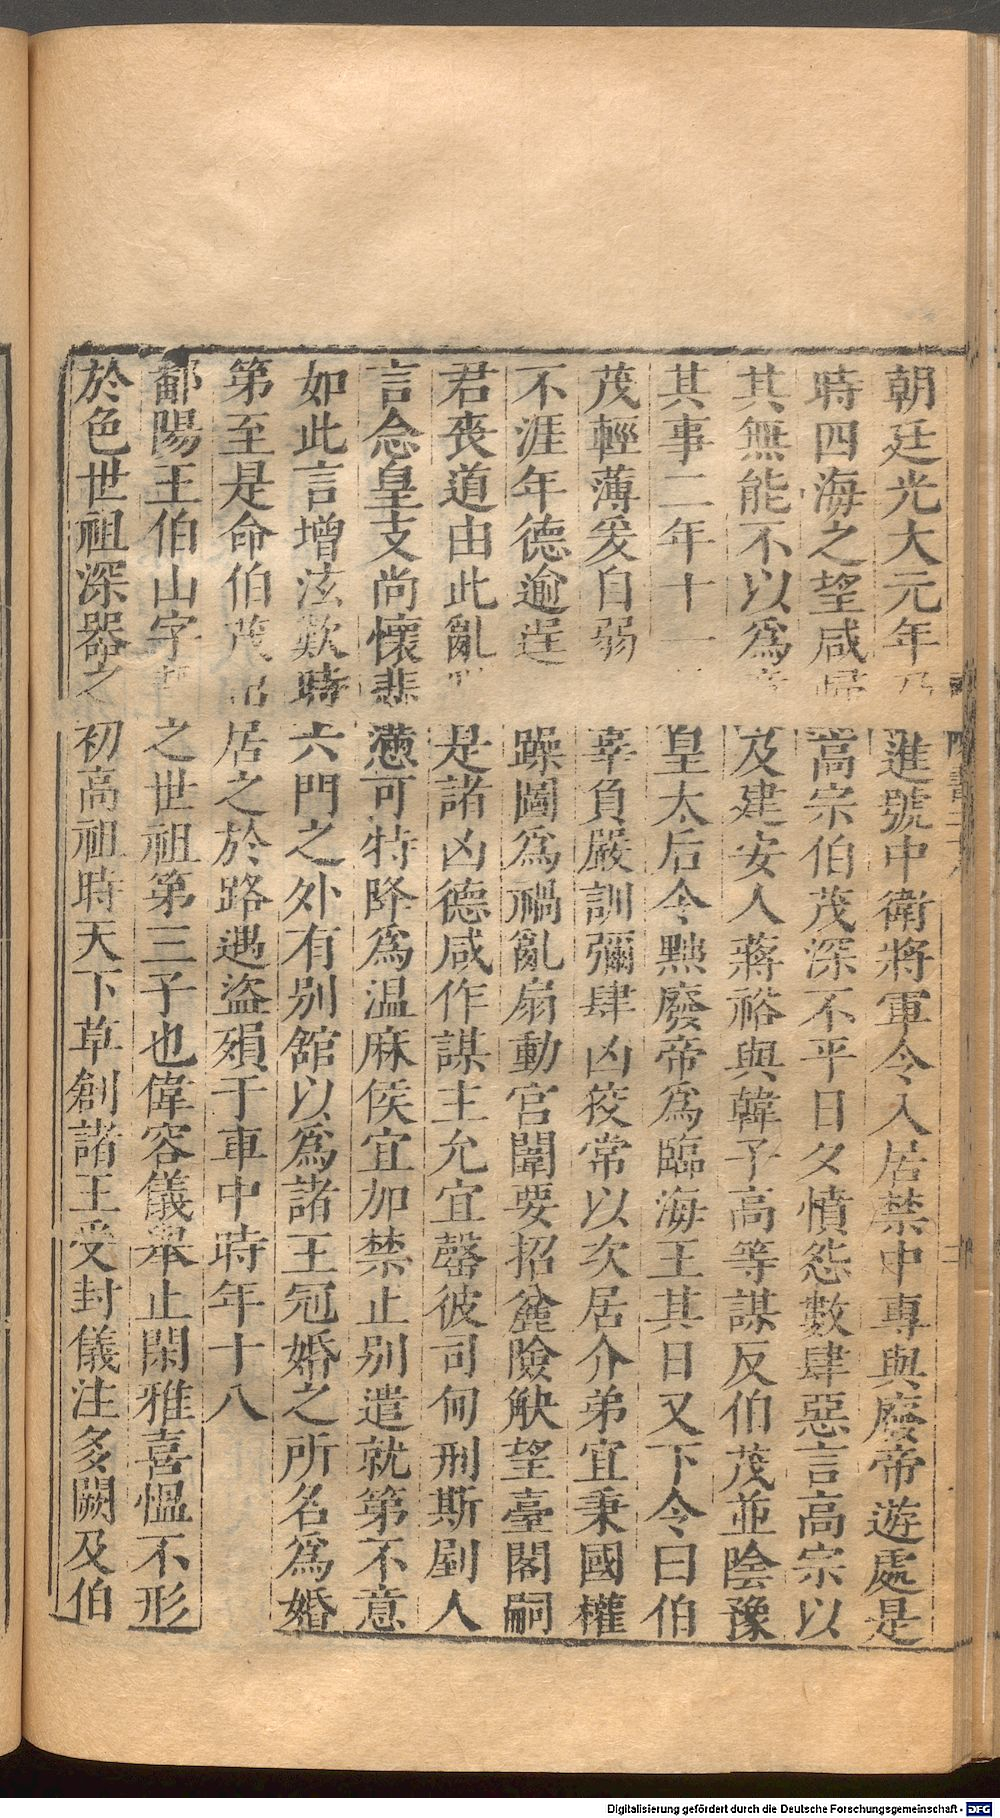 朝廷光大元年進號中衛將軍令入居禁中專與廢帝遊處是
時四海之望咸歸高宗伯茂深不平日夕憤怨數肆惡言高宗以
其無能不以爲意及建安人蔣裕與韓子高等謀反伯茂並陰豫
其事二年十一皇太后令黜廢帝爲臨海王其日又下令曰伯
茂輕薄爰自弱辜負嚴訓彌肆凶狡常以次居介弟宜秉國權
不涯年德逾逞躁圖爲禍亂扇動官闈要招麄險觖望臺閣嗣
君喪道由此亂是諸凶德咸作謀主允宜罄彼司甸刑斯剭人
言念皇支尚懷悲懣可特降爲溫麻侯宜加禁止别遣就第不意
如此言增泫歎時六門之外有别館以爲諸王冠婚之所名爲婚
第至是命伯茂出居之於路遇盜殞于車中時年十八
鄱陽王伯山字靜之世祖第三子也偉容儀舉止閑雅喜慍不形
於色世祖深器之初高祖時天下草創諸王受封儀注多闕及伯
Digitalisierung gefördert durch die Deutsche Forschungsgemeinschaft - DFG